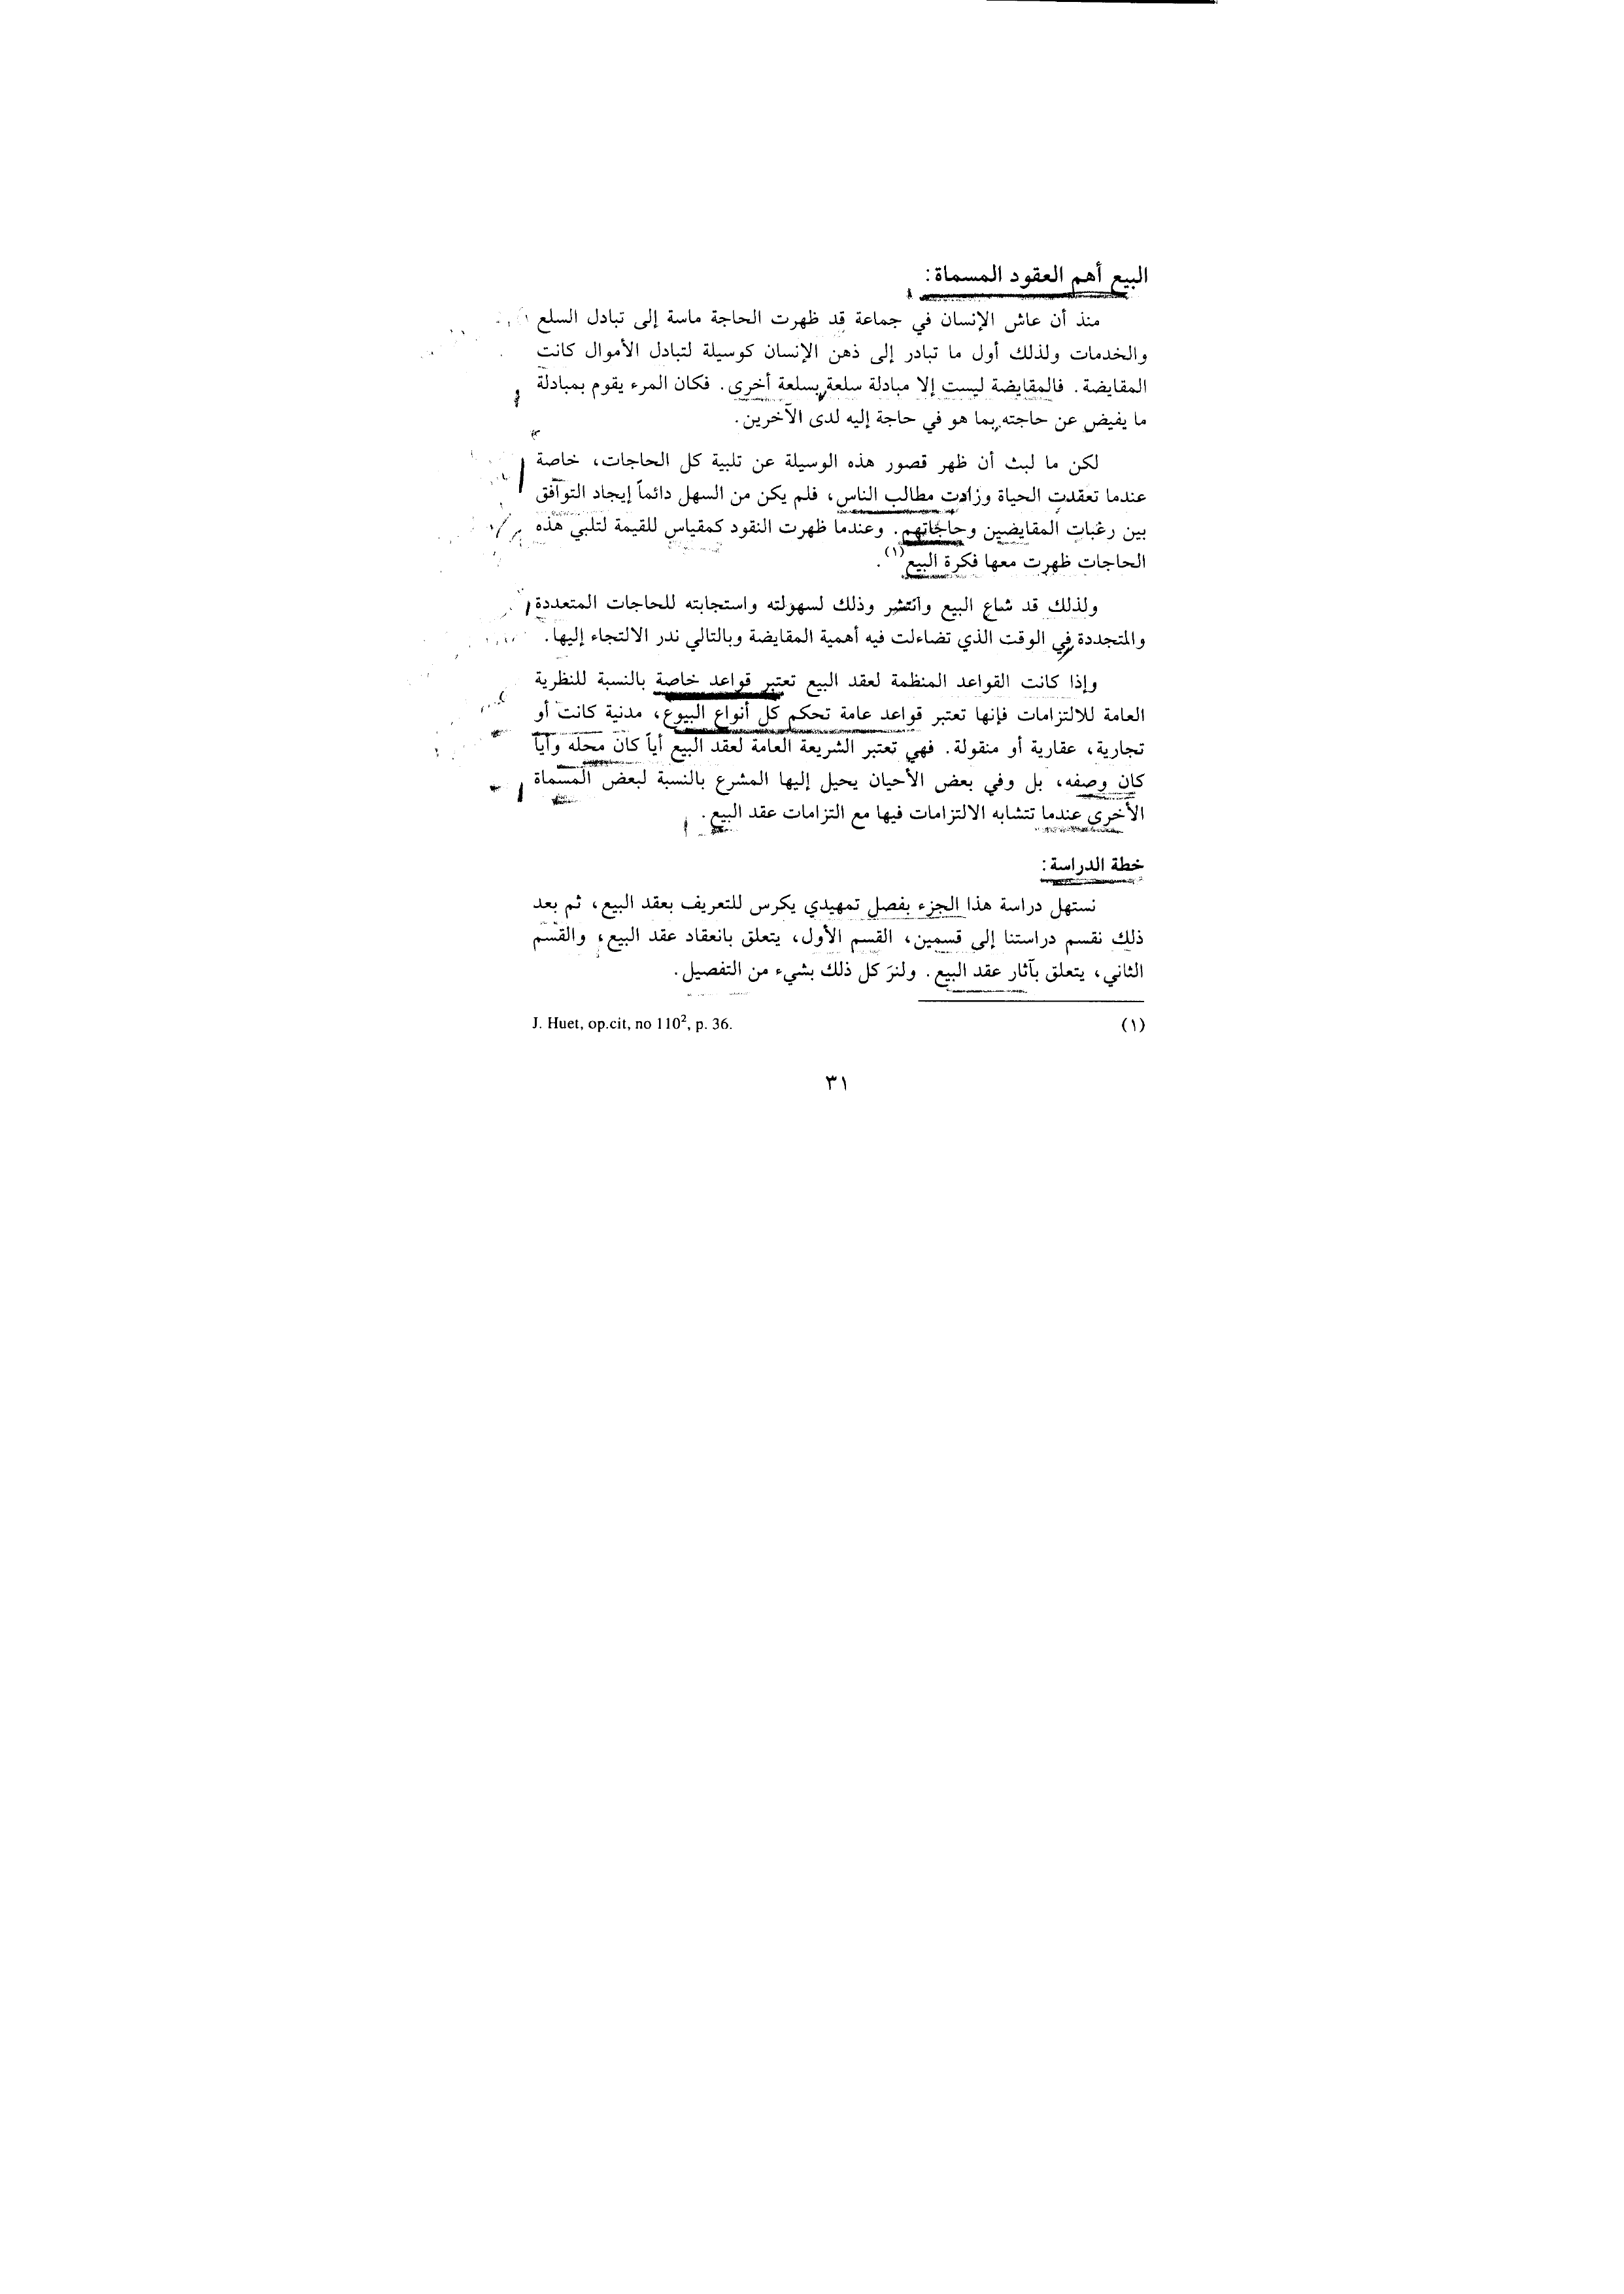 البيع أهم العقود المسماة:
منذ أن عاش الإنسان في جماعة قد ظهرت الحاجة ماسة إلى تبادل السلع
والخدمات ولذلك أول ما تبادر إلى ذهن الإنسان كوسيلة لتبادل الأموال كانت
المقايضة. فالمقايضة ليست إلا مبادلة سلعة بسلعة أخرى. فكان المرء يقوم بمبادلة
ما يفيض عن حاجته بما هو في حاجة إليه لدى الآخرين.
لكن ما لبث أن ظهر قصور هذه الوسيلة عن تلبية كل الحاجات، خاصة
عندما تعقدت الحياة وزادت مطالب الناس، فلم يكن من السهل دائماً إيجاد التوافق
بين رغبات المقايضين وحاجاتهم. وعندما ظهرت النقود كمقياس للقيمة لتلبي هذه
الحاجات ظهرت معها فكرة البيع(١).
ولذلك قد شاع البيع وانتشر وذلك لسهولته واستجابته للحاجات المتعددة
والمتجددة في الوقت الذي تضاءلت فيه أهمية المقايضة وبالتالي ندر الالتجاء إليها.
وإذا كانت القواعد المنظمة لعقد البيع تعتبر قواعد خاصة بالنسبة للنظرية
العامة للالتزامات فإنها تعتبر قواعد عامة تحكم كل أنواع البيوع، مدنية كانت أو
تجارية، عقارية أو منقولة. فهي تعتبر الشريعة العامة لعقد البيع أياً كان محله وأياً
كان وصفه، بل وفي بعض الأحيان يحيل إليها المشرع بالنسبة لبعض المسماة
الأخرى عندما تتشابه الالتزامات فيها مع التزامات عقد البيع.
خطة الدراسة:
نستهل دراسة هذا الجزء بفصل تمهيدي يكرس للتعريف بعقد البيع، ثم بعد
ذلك نقسم دراستنا إلى قسمين، القسم الأول، يتعلق بانعقاد عقد البيع، والقسم
الثاني، يتعلق بآثار عقد البيع. ولنرَ كل ذلك بشيء من التفصيل.
(١) J. Huet, op.cit, no 110², p. 36.
٣١